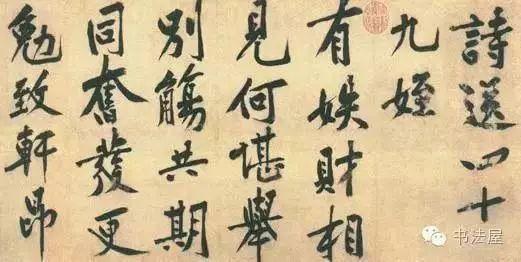 詩送四十
九姪
有娱財相
見何堪舉
別觴共期
同奮發更
勉致軒昂
书法屋